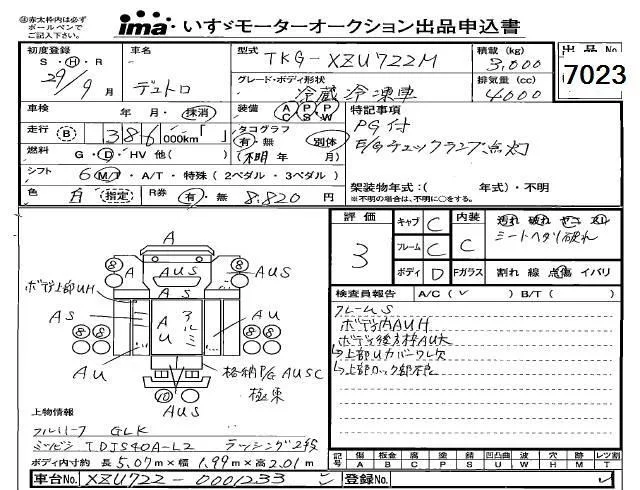 ④赤太枠内は必ずボールペンでご記入下さい。
ima いすゞモーターオークション出品申込書
出品No
7023
初度登録 S・H・R 29/9月
車名 デュトロ
型式 TKG-XZU722M
積載(kg) 3,000
グレード・ボディ形状 冷蔵冷凍車
排気量(cc) 4000
車検 年・月・抹消
装備 AC PS PW
特記事項
PG付
E/Gチェックランプ点灯
走行 B 386 000km「 」
タコグラフ 有・無 別体
燃料 G・D・HV 他( )
(不明 年 月)
シフト 6 M/T・A/T・特殊(2ペダル・3ペダル)
架装物年式:( 年式)・不明
※不明の場合は、不明に○をする。
色 白 指定
R券 有・無 8,820円
評価 3
キャブ C
フレーム C
ボディ D
内装 C
シートヘタリ破れ
Fガラス 割れ 線 点傷 イバリ
検査員報告 A/C( ✓ ) B/T( )
フレームS
ボディ内AUH
ボディ後方枠AU大
→上部Uカバーワレ欠
→上部ロック部不良
A
8 A AUS AUS 8
ボデー上部UH
A S
AS A アルミ AU
8 8 U 8 8
AU
格納P/G AUSC
極東
10
AUS
上物情報
フルハーフ GLK
ミツビシ TDJS40A-L2 ラッシング2段
ボディ内寸約 長5.07m×幅1.99m×高2.01m
記号 傷A 板金B 腐C 塗P 錆S 凹凸曲U 波W 穴H 跡M レンズ割T
車台No. XZU722-0001233
登録No.